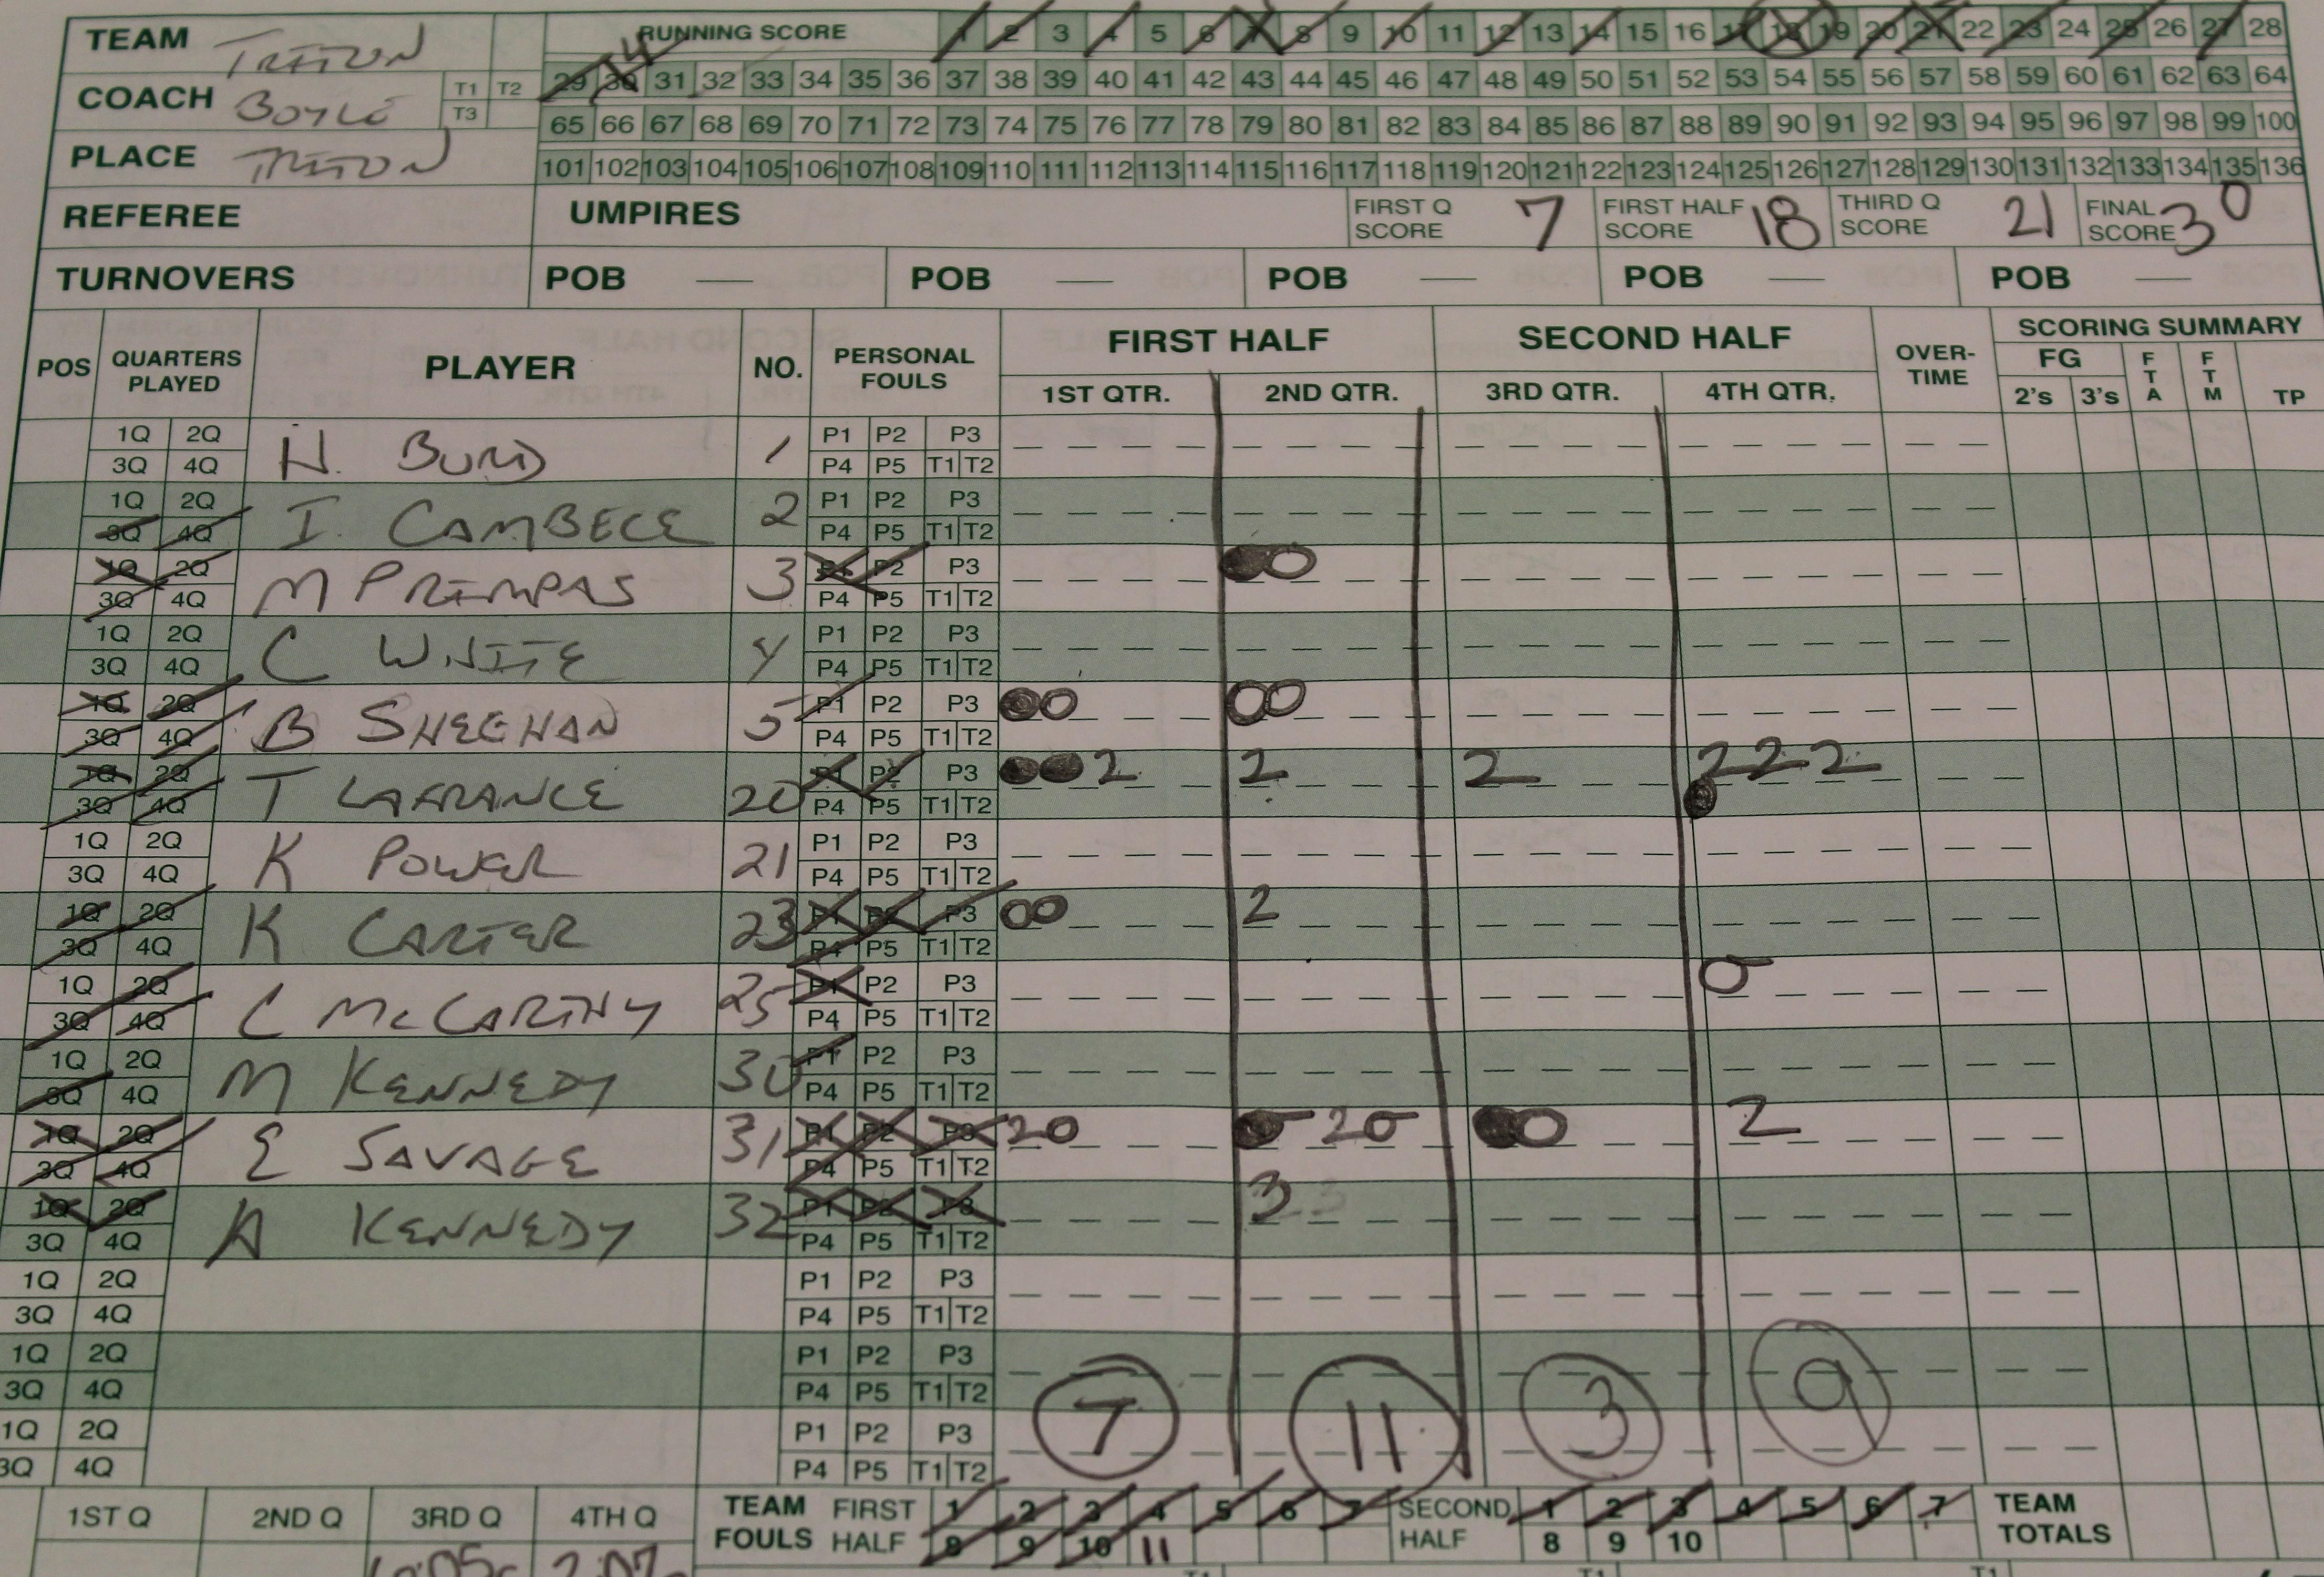 TEAM TRITON RUNNING SCORE 1 2 3 4 5 6 7 8 9 10 11 12 13 14 15 16 17 18 19 20 21 22 23 24 25 26 27 28
COACH BOYLE T1 T2 T3 29 30 31 32 33 34 35 36 37 38 39 40 41 42 43 44 45 46 47 48 49 50 51 52 53 54 55 56 57 58 59 60 61 62 63 64
65 66 67 68 69 70 71 72 73 74 75 76 77 78 79 80 81 82 83 84 85 86 87 88 89 90 91 92 93 94 95 96 97 98 99 100
PLACE TRITON 101 102 103 104 105 106 107 108 109 110 111 112 113 114 115 116 117 118 119 120 121 122 123 124 125 126 127 128 129 130 131 132 133 134 135 136
REFEREE UMPIRES FIRST Q SCORE 7 FIRST HALF SCORE 18 THIRD Q SCORE 21 FINAL SCORE 30
TURNOVERS POB — POB — POB — POB — POB —
POS QUARTERS PLAYED PLAYER NO. PERSONAL FOULS FIRST HALF SECOND HALF OVER-TIME SCORING SUMMARY
1ST QTR. 2ND QTR. 3RD QTR. 4TH QTR. FG 2's 3's FTA FTM TP
1Q 2Q N. BURD 1 P1 P2 P3
3Q 4Q P4 P5 T1 T2
1Q 2Q I. CAMBECE 2 P1 P2 P3
3Q 4Q P4 P5 T1 T2
1Q 2Q M PRIMPAS 3 P1 P2 P3
3Q 4Q P4 P5 T1 T2
1Q 2Q C WHITE 4 P1 P2 P3
3Q 4Q P4 P5 T1 T2
1Q 2Q B SHEEHAN 5 P1 P2 P3
3Q 4Q P4 P5 T1 T2
1Q 2Q T LAFRANCE 20 P1 P2 P3 2 2 2 2 2 2
3Q 4Q P4 P5 T1 T2
1Q 2Q K POWER 21 P1 P2 P3
3Q 4Q P4 P5 T1 T2
1Q 2Q K CARTER 23 P1 P2 P3 2
3Q 4Q P4 P5 T1 T2
1Q 2Q C McCARTHY 25 P1 P2 P3
3Q 4Q P4 P5 T1 T2
1Q 2Q M KENNEDY 30 P1 P2 P3
3Q 4Q P4 P5 T1 T2
1Q 2Q E SAVAGE 31 P1 P2 P3 20 20 2
3Q 4Q P4 P5 T1 T2
1Q 2Q A KENNEDY 32 P1 P2 P3 3
3Q 4Q P4 P5 T1 T2
1Q 2Q P1 P2 P3
3Q 4Q P4 P5 T1 T2
1Q 2Q P1 P2 P3
3Q 4Q P4 P5 T1 T2
7 11 3 9
1Q 2Q P1 P2 P3
3Q 4Q P4 P5 T1 T2
1ST Q 2ND Q 3RD Q 4TH Q TEAM FOULS FIRST HALF 1 2 3 4 5 6 7 SECOND HALF 1 2 3 4 5 6 7 TEAM TOTALS
8 9 10 11 8 9 10